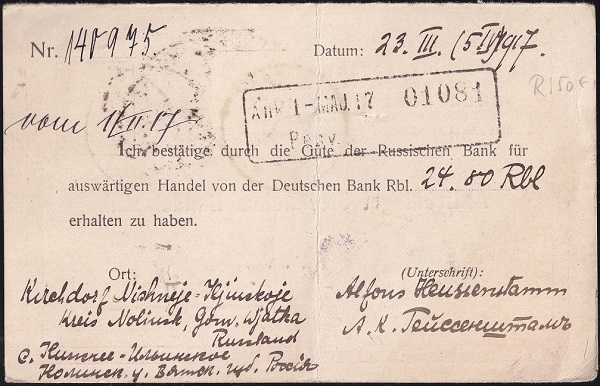 Nr. 140975
Datum: 23. III. (5 IV) 917.
R150
Ank 1-MAJ.17 01081
vom 11/II.17
Ich bestätige durch die Güte der Russischen Bank für
auswärtigen Handel von der Deutschen Bank Rbl. 24.80 Rbl
erhalten zu haben.
Ort:
(Unterschrift):
Kirchdorf Nishneje-Iljinskoje
Kreis Nolinsk, Gouv. Wjatka
Russland
с. Нижнее-Ильинское
Нолинск. у. Вятск. губ. Россія
Alfons Heussenstamm
А. К. Гейссенштамъ